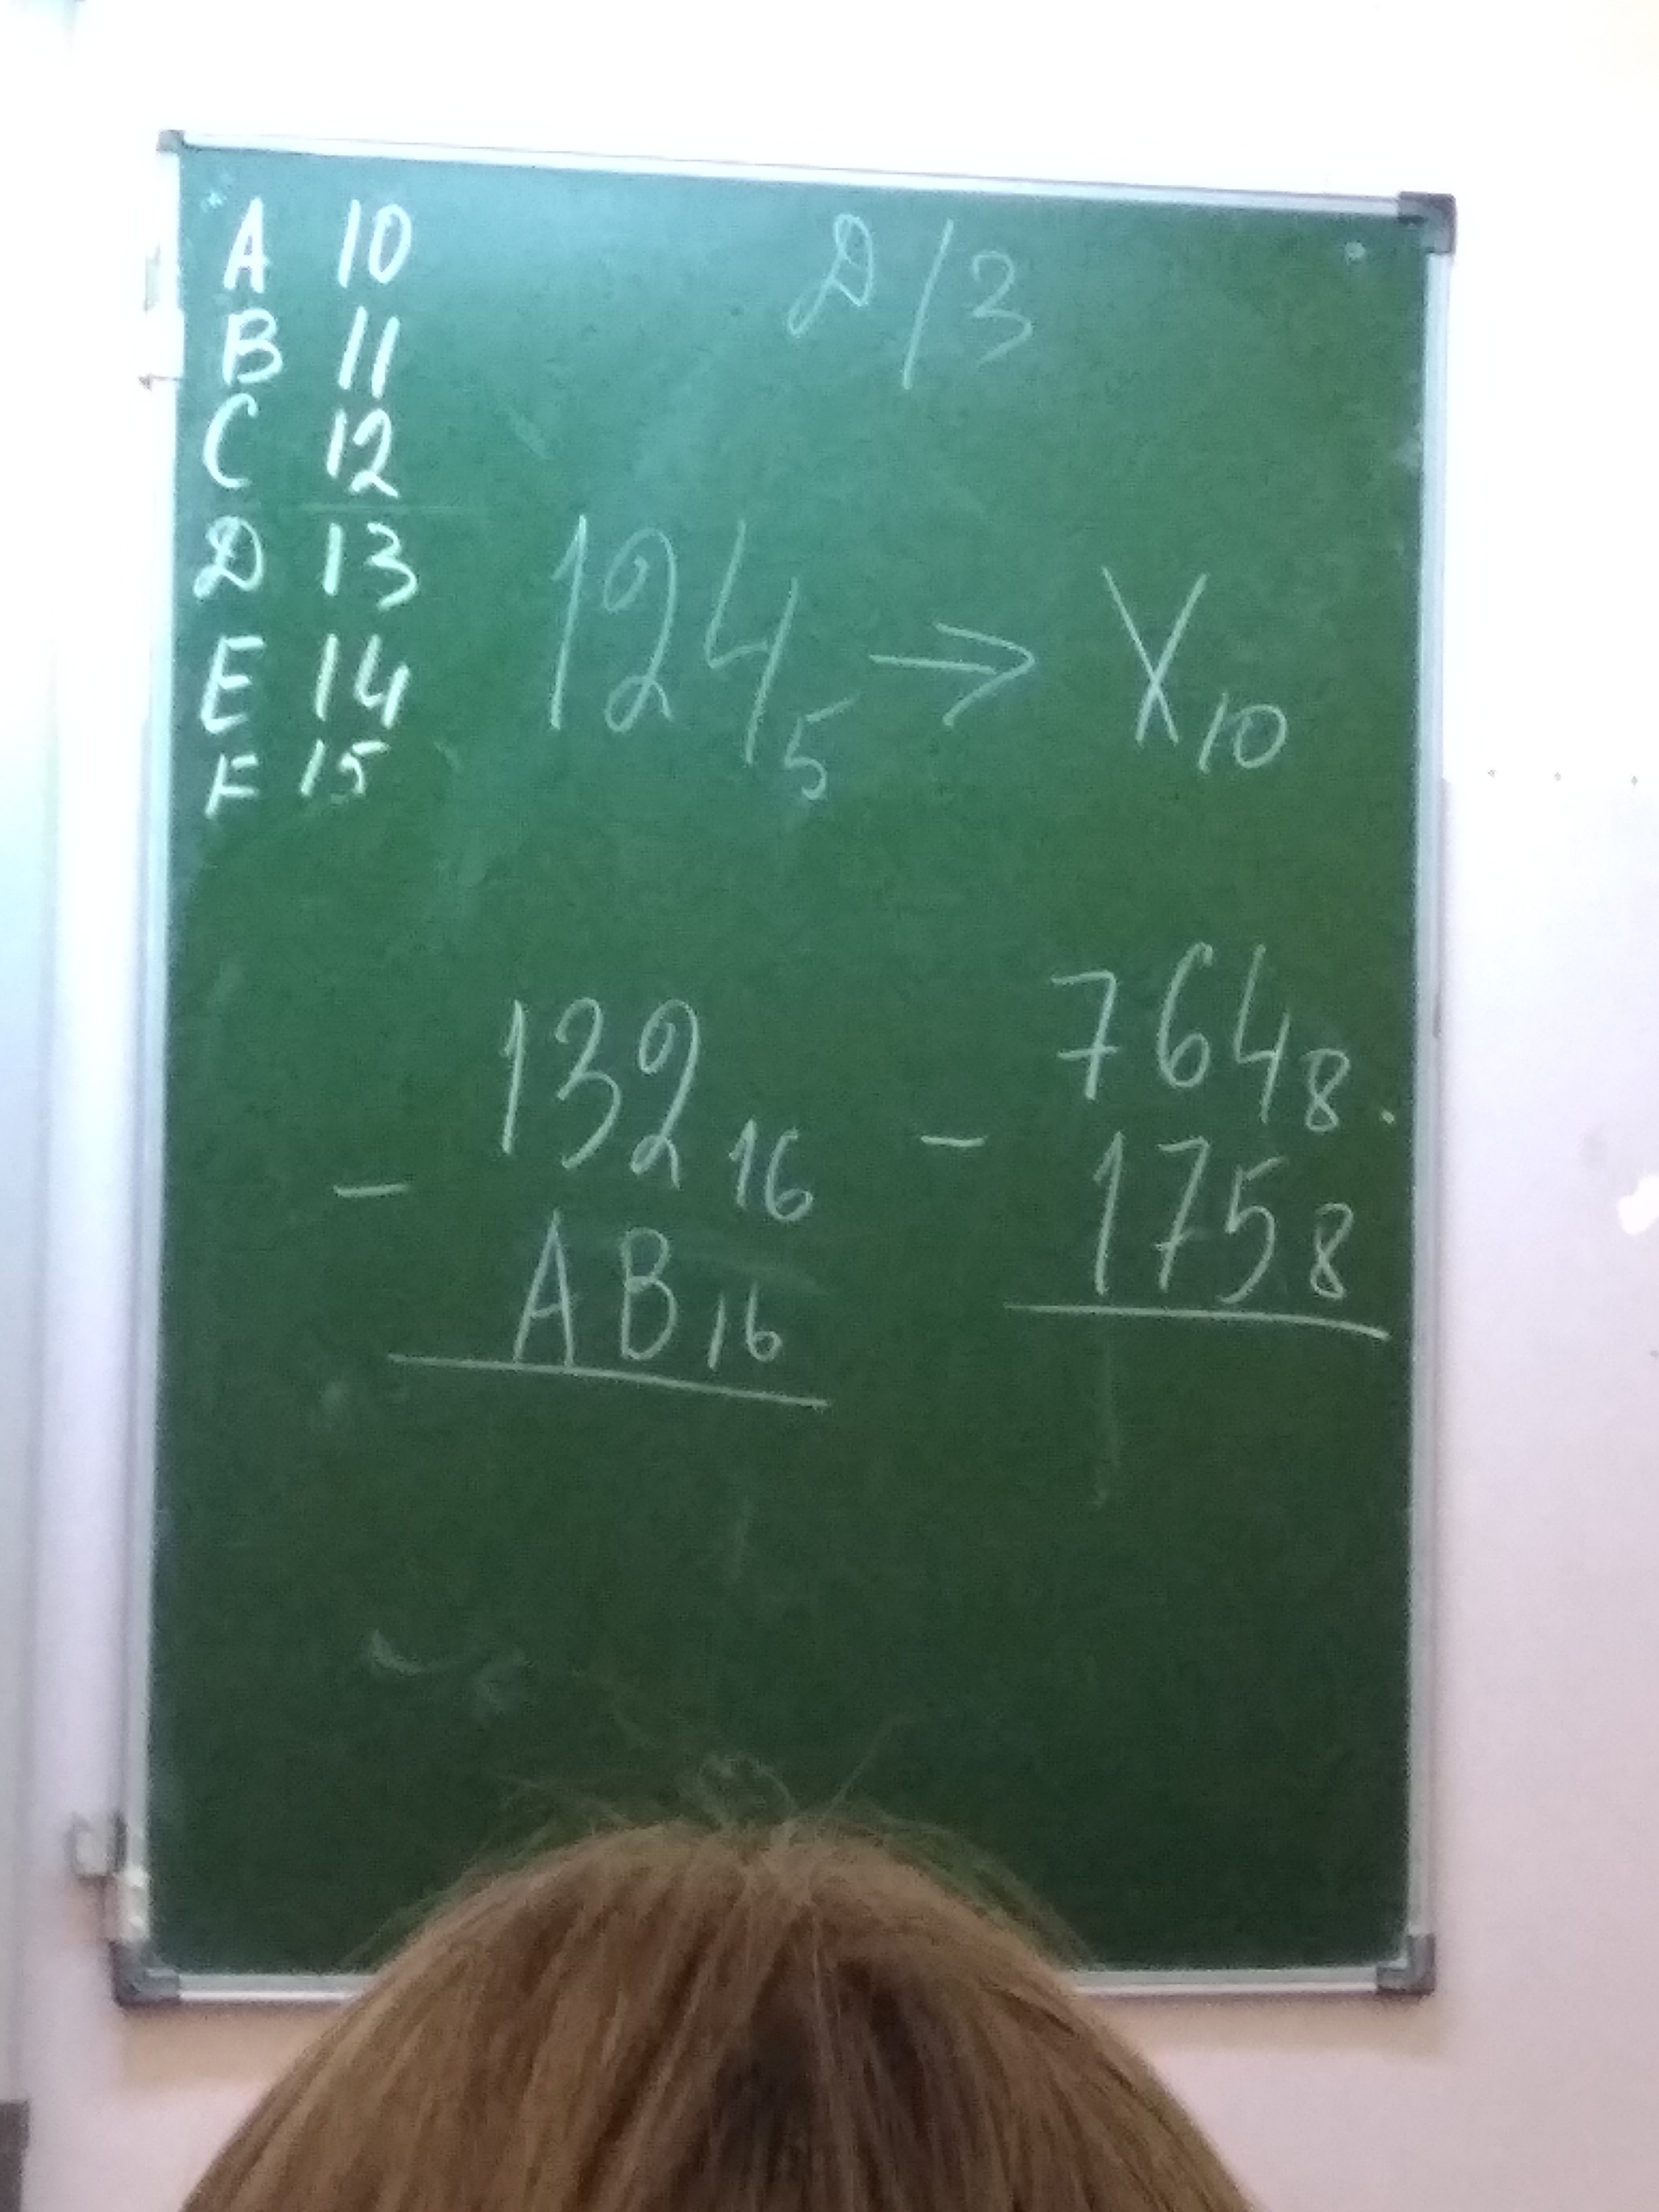 A 10
B 11
C 12
D 13
E 14
F 15
Д/З
124₅ → X₁₀
132₁₆
−
AB₁₆
764₈.
−
175₈